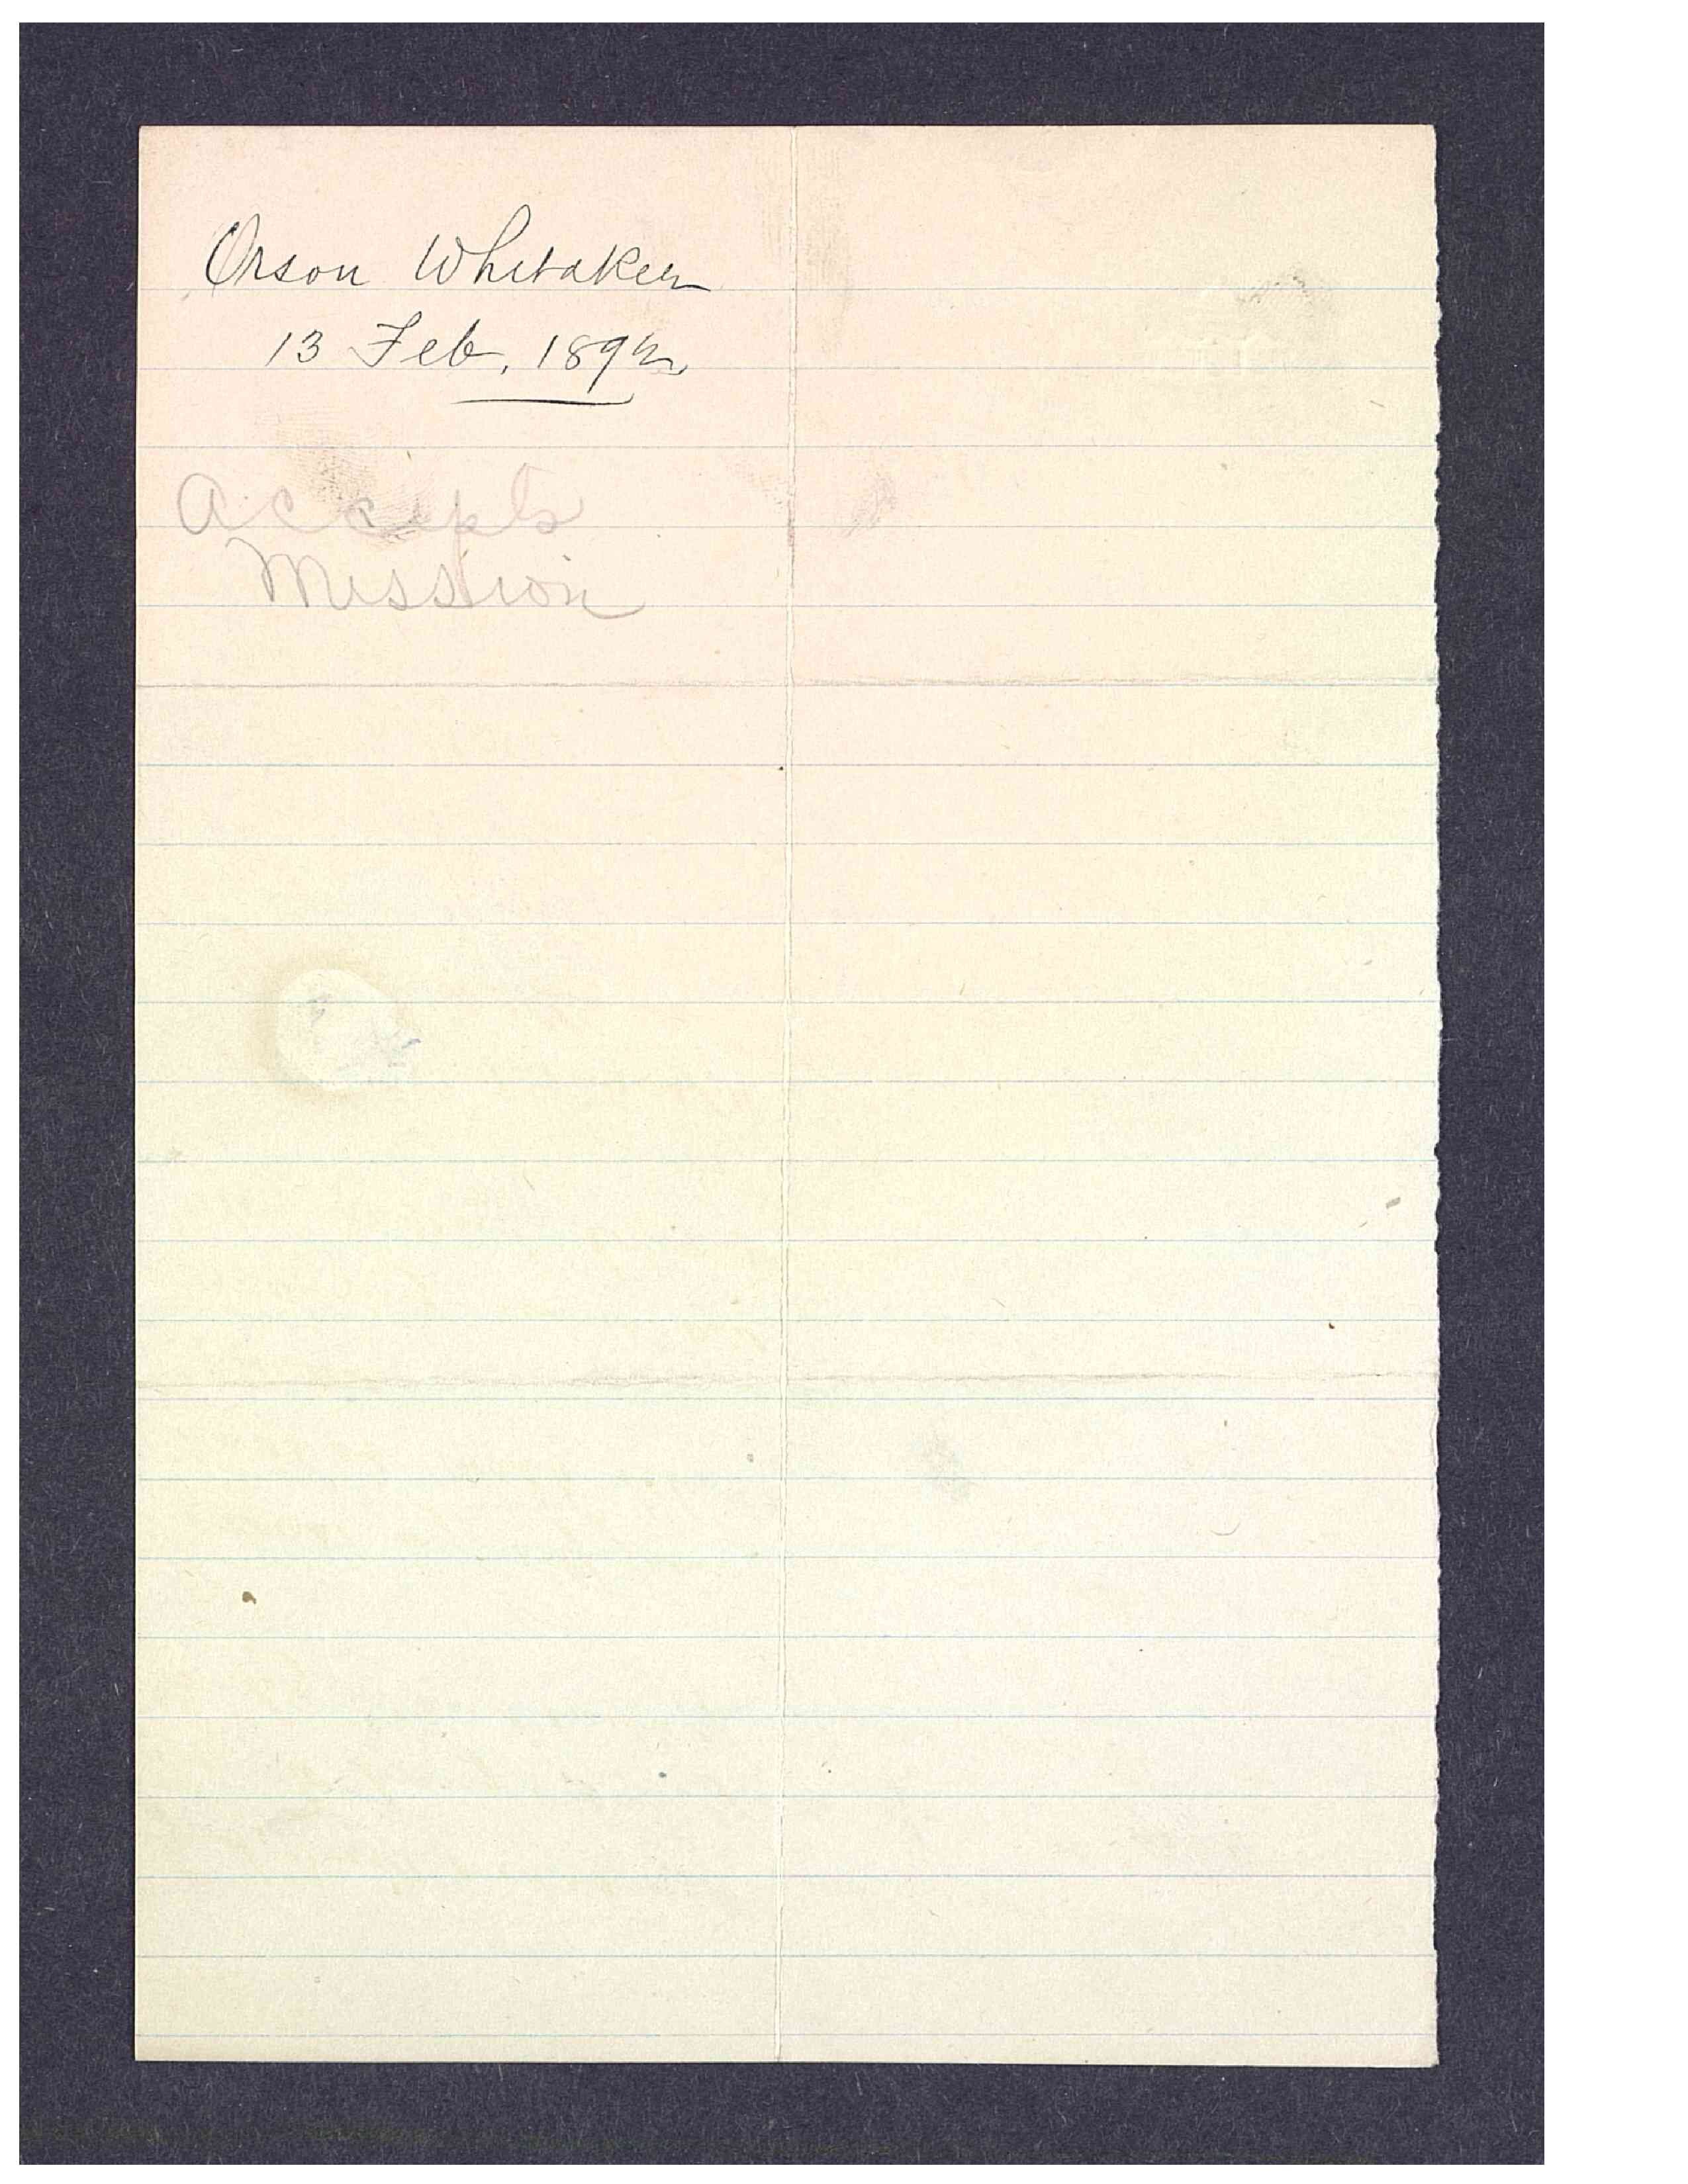 Orson Whitaker
13 Feb, 189
Accepts
Mission